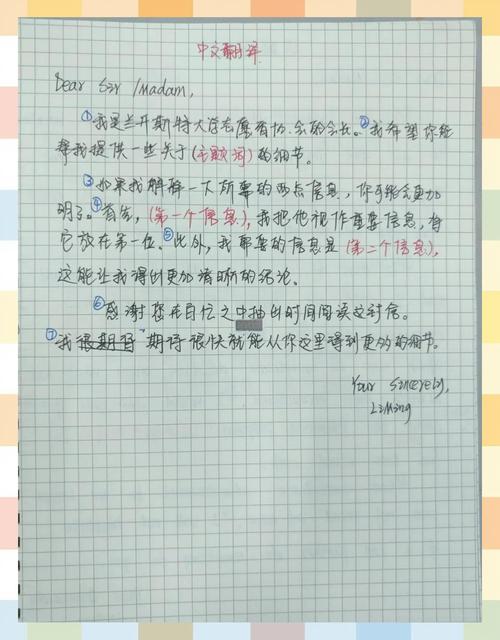 中文翻译
Dear Sir /Madam,
①我是兰开斯特大学志愿者协会的会长。②我希望你能
帮我提供一些关于(主题词)的细节。
③如果我解释一下所要的两点信息，你可能会更加
明了。④首先，(第一个信息)，我把他视作重要信息，将
它放在第一位。⑤此外，我需要的信息是(第二个信息)，
这能让我得出更加清晰的结论。
⑥感谢您在百忙之中抽出时间阅读这封信。
⑦我很期待 期待很快就能从你这里得到更多的细节。
Your Sincerely,
LiMing